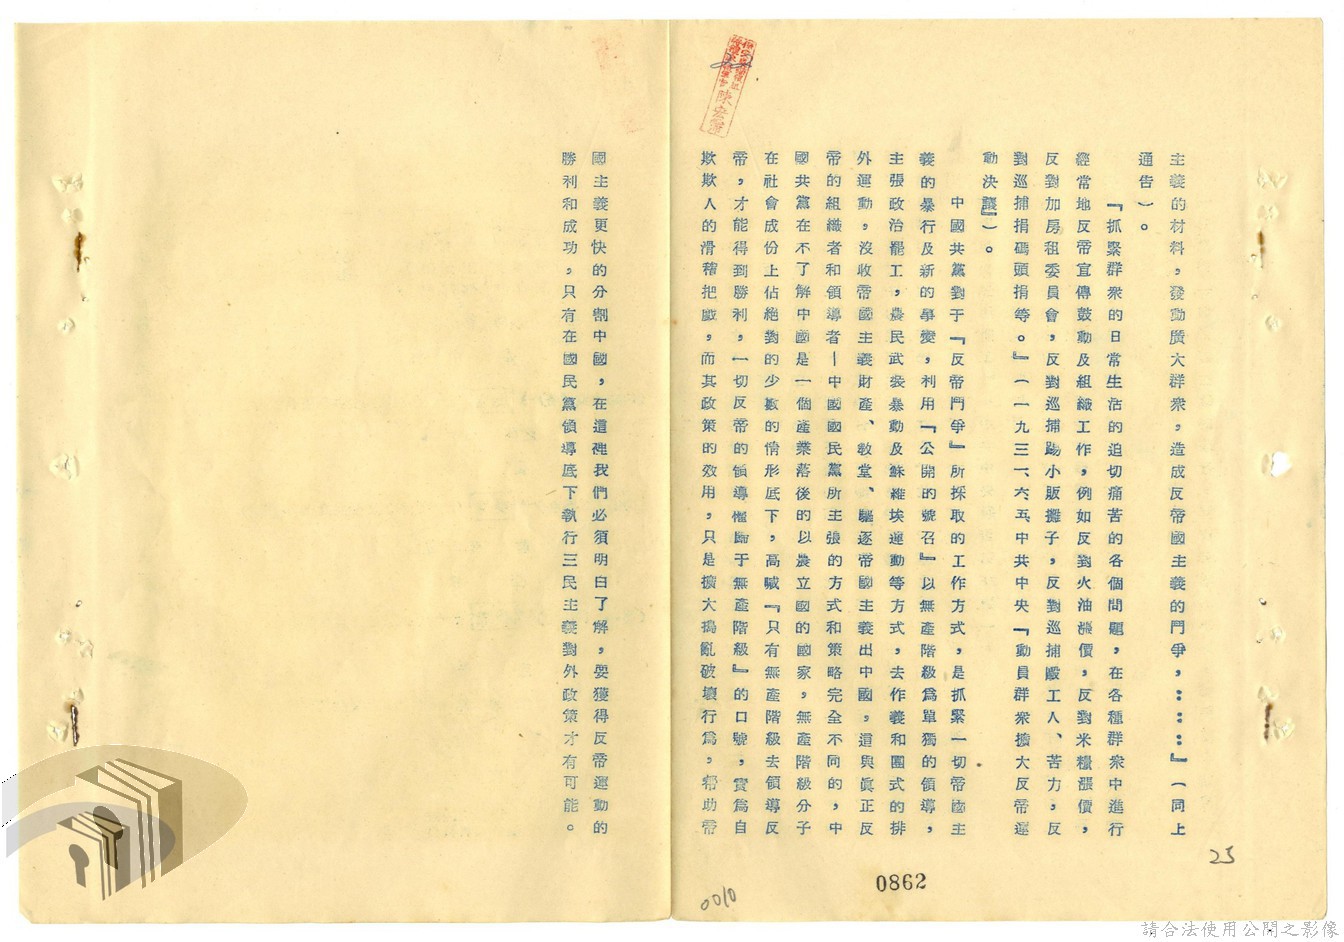 主義的材料，發動廣大群衆，造成反帝國主義的鬥爭，………』（同上
通告）。
『抓緊群衆的日常生活的迫切痛苦的各個問題，在各種群衆中進行
經常地反帝宣傳鼓動及組織工作，例如反對火油漲價，反對米糧漲價，
反對加房租委員會，反對巡捕踢小販攤子，反對巡捕毆工人、苦力，反
對巡捕捐碼頭捐等。』（一九三一、六五、中共中央『動員群衆擴大反帝運
動決議』）。
中國共黨對于『反帝鬥爭』所採取的工作方式，是抓緊一切帝國主
義的暴行及新的事變，利用『公開的號召』以無產階級爲單獨的領導，
主張政治罷工，農民武裝暴動及蘇維埃運動等方式，去作義和團式的排
外運動，沒收帝國主義財產、敎堂、驅逐帝國主義出中國，這與眞正反
帝的組織者和領導者—中國國民黨所主張的方式和策略完全不同的，中
國共黨在不了解中國是一個產業落後的以農立國的國家，無產階級分子
在社會成份上佔絕對的少數的情形底下，高喊『只有無產階級去領導反
帝，才能得到勝利，一切反帝的領導權歸于無產階級』的口號，實爲自
欺欺人的滑稽把戲，而其政策的效用，只是擴大搗亂破壞行爲，帮助帝
國主義更快的分割中國，在這裡我們必須明白了解，要獲得反帝運動的
勝利和成功，只有在國民黨領導底下執行三民主義對外政策才有可能。
23
0862
0010
請合法使用公開之影像